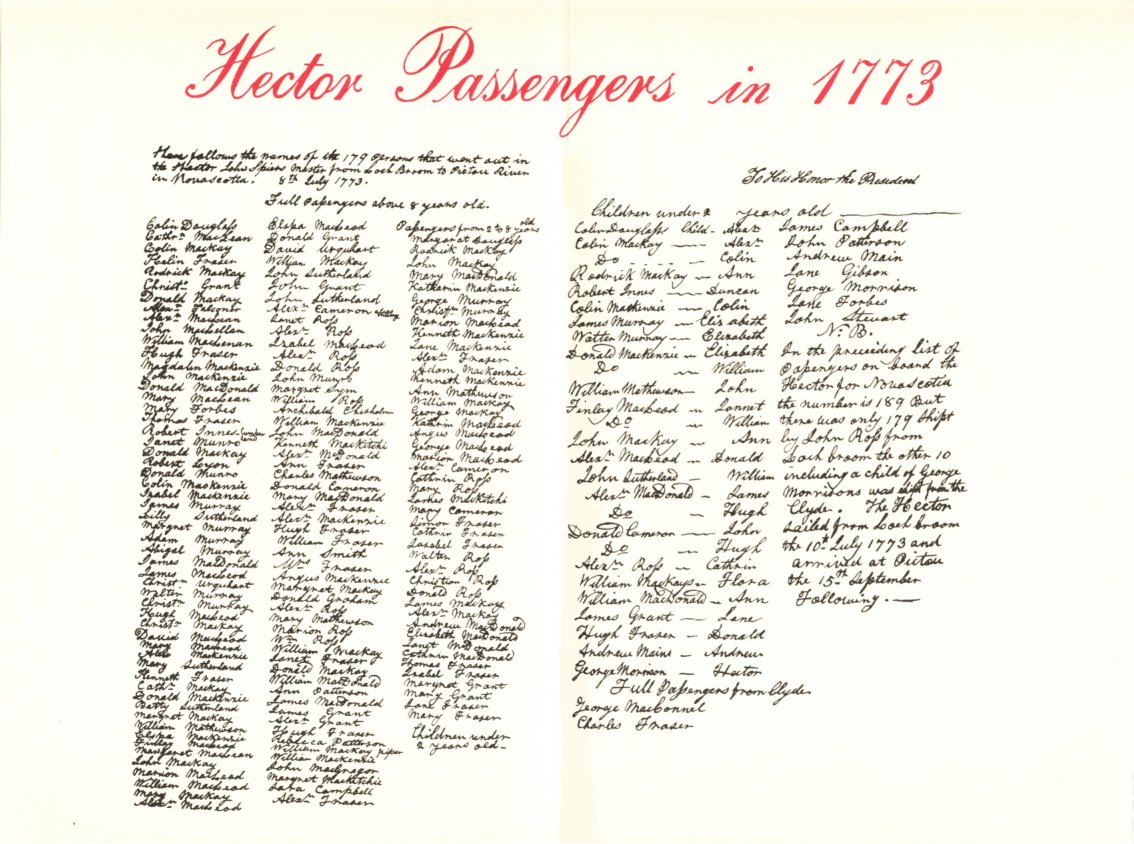 Hector Passengers in 1773
Here follows the names of the 179 Persons that went out in
the Hector John Spiers Master from Loch Broom to Pictou River
in Novascotta. 8th July 1773.
Full Paſsengers above 8 years old.
Colin Douglaſs
Cathrn MacLean
Colin Mackay
Helin Fraser
Rodrick Mackay
Christn Grant
Donald Mackay
Alexr Falconer
Alexr MacLean
John MacLellan
William MacLenan
Hugh Fraser
Magdalen Mackenzie
John Mackenzie
Donald MacDonald
Mary MacLean
Mary Forbes
Thomas Fraser
Robert Innes
Janet Munro
Donald Mackay
Robert Lyon
Donald Munro
Colin Mackenzie
Isabel Mackenzie
James Murray
Lilly Sutherland
Margret Murray
Adam Murray
Abigal Murray
James MacDonald
James MacLeod
Christn Urquhart
Walter Murray
Christn Murray
Hugh MacLeod
Christn Mackay
David MacLeod
Mary MacLeod
Alexr Mackenzie
Mary Sutherland
Kenneth Fraser
Cathn Mackay
Donald Mackenzie
Betty Sutherland
Margret Mackay
William Mathewson
Elspa Mackenzie
Finlay MacLeod
Margaret MacLean
John Mackay
Marion MacLeod
William MacLeod
Mary Mackay
Alexr MacLeod
Elspa MacLeod
Donald Grant
David Urquhart
William Mackay
John Sutherland
John Grant
John Sutherland
Alexr Cameron
Janet Roſs
Alexr Roſs
Isabel MacLeod
Alexr Roſs
Donald Roſs
John Munro
Margret Sym
William Roſs
Archibald Chisholm
William Mackenzie
John MacDonald
Kenneth Mackitchi
Alexr McDonald
Ann Fraser
Charles Mathewson
Donald Cameron
Mary MacDonald
Alexr Fraser
Alexr Mackenzie
Hugh Fraser
William Fraser
Ann Smith
Mrs Fraser
Angus Mackenzie
Margret Mackay
Donald Graham
Alexr Roſs
Mary Mathewson
Marion Roſs
Wm Roſs
William Mackay
Janet Fraser
Donald Mackay
William MacDonald
Ann Patterson
James MacDonald
James Grant
Alexr Grant
Hugh Fraser
Rebecca Patterson
William Mackay piper
William Mackenzie
John MacGragor
Margret Mackitchie
Sara Campbell
Alexr Fraser
Paſsengers from 2 to 8 years old
Margarat Douglaſs
Rodrick Mackay
John Mackay
Mary MacDonald
Katharin Mackenzie
George Murray
Christn Murray
Marion MacLeod
Kenneth Mackenzie
Jane Mackenzie
Alexr Fraser
Adam Mackenzie
Kenneth Mackenzie
Ann Mathewson
William Mackay
George Mackay
Kathrin MacLeod
Angus MacLeod
George MacLeod
Marion MacLeod
Alexr Cameron
Cathrin Roſs
Mary Roſs
James Mackitchi
Mary Cameron
Simon Fraser
Cathrin Fraser
Isabel Fraser
Walter Roſs
Alexr Roſs
Christian Roſs
Donald Roſs
James Mackay
Alexr Mackay
Andrew MacDonald
Elizabeth MacDonald
Janet McDonald
Cathrin MacDonald
Thomas Fraser
Isabel Fraser
Margret Grant
Mary Grant
Jane Fraser
Mary Fraser
Children under
2 years old -
To His Honor the Presedend
Children under 2 years old
Colin Douglaſs Child - Alexr
Colin Mackay - Alexr
Do - Colin
Rodrick Mackay - Ann
Robert Innes - Duncan
Colin Mackenzie - Colin
James Murray - Elizabeth
Watter Murray - Elizabeth
Donald Mackenzie - Elizabeth
Do - William
William Mathewson - John
Finley MacLeod - Jannet
Do - William
John Mackay - Ann
Alexr MacLeod - Donald
John Sutherland - William
Alexr MacDonald - James
Do - Hugh
Donald Cameron - John
Do - Hugh
Alexr Roſs - Cathrin
William Mackays - Flora
William MacDonald - Ann
James Grant - Jane
Hugh Fraser - Donald
Andrew Mains - Andrew
George Morrison - Hector
Full Paſsengers from Clyde
George MacConnel
Charles Fraser
James Campbell
John Patterson
Andrew Main
Jane Gibson
George Morrison
Jane Forbes
John Stewart
N. B.
In the preceeding List of
Paſsengers on board the
Hector for Novascotia
the number is 189 But
there was only 179 Shipt
by John Roſs from
Loch broom the other 10
including a child of George
Morrisons was shipt from the
Clyde. The Hector
sailed from Loch broom
the 10th July 1773 and
arrived at Pictou
the 15th September
Following. -